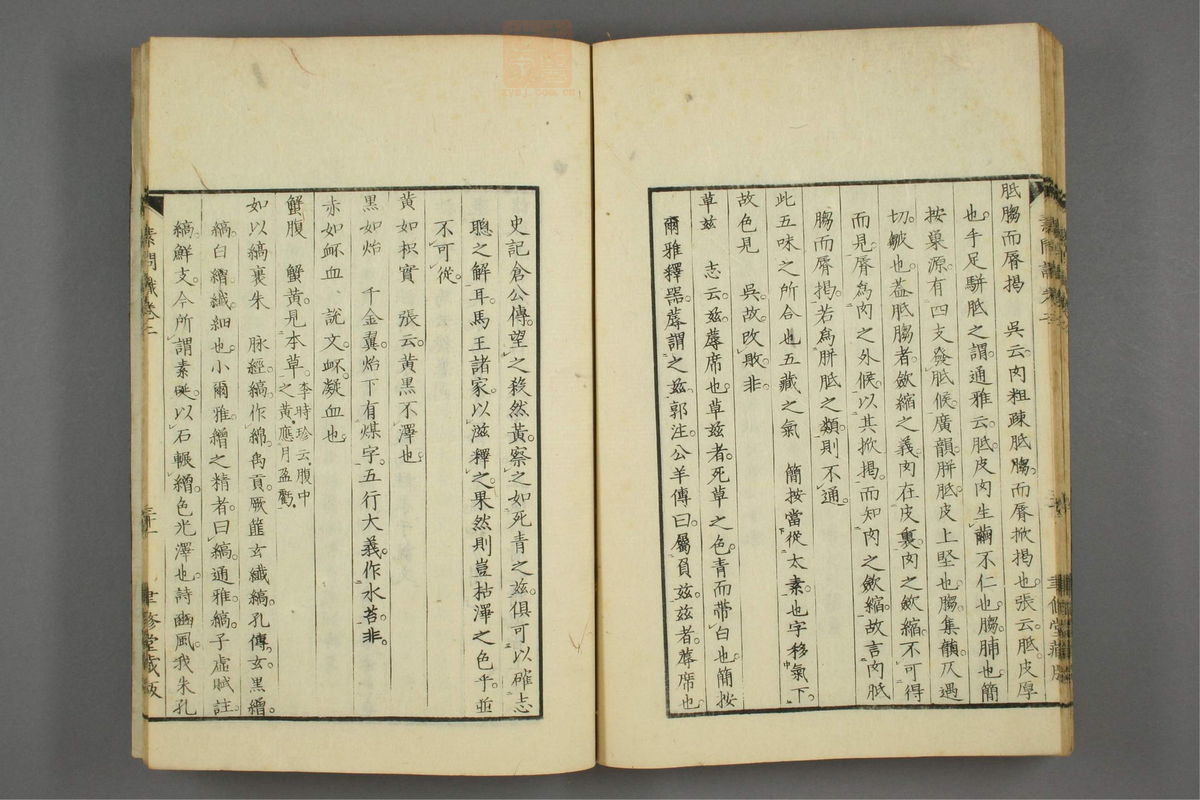 胝䐢而脣揭　吳云肉粗疎胝䐢而脣掀揭也張云胝皮厚
也手足駢胝之謂通雅云胝皮肉生繭不仁也䐢脯也簡
按巢源有四支發胝候廣韻胼胝皮上堅也䐢集韻仄遇
切皺也蓋胝䐢者斂縮之義肉在皮裏肉之斂縮不可得
而見脣爲肉之外候以其掀揭而知肉之斂縮故言肉胝
䐢而脣揭若爲胼胝之類則不通
此五味之所合也五藏之氣　簡按當從太素也字移氣下
故色見　吳故改敗非
草兹　志云兹蓐席也草兹者死草之色青而帶白也簡按
爾雅釋器蓐謂之兹郭注公羊傳曰屬負兹兹者蓐席也
史記倉公傳望之殺然黃察之如死青之兹俱可以確志
聰之解耳馬王諸家以滋釋之果然則豈枯澤之色乎並
不可從
黄如枳實　張云黄黑不澤也
黑如炲　千金翼炲下有煤字五行大義作水苔非
赤如衃血　說文衃凝血也
蟹腹　蟹黄見本草李時珍云腹中之黄應月盈虧
如以縞裹朱　脉經縞作綿禹貢厥篚玄纖縞孔傳玄黑繒
縞白繒纖細也小爾雅繒之精者曰縞通雅縞子虛賦註
縞鮮支今所謂素以石輾繒色光澤也詩豳風我朱孔
素問識卷二
三十一
聿修堂藏板
聿修堂藏版